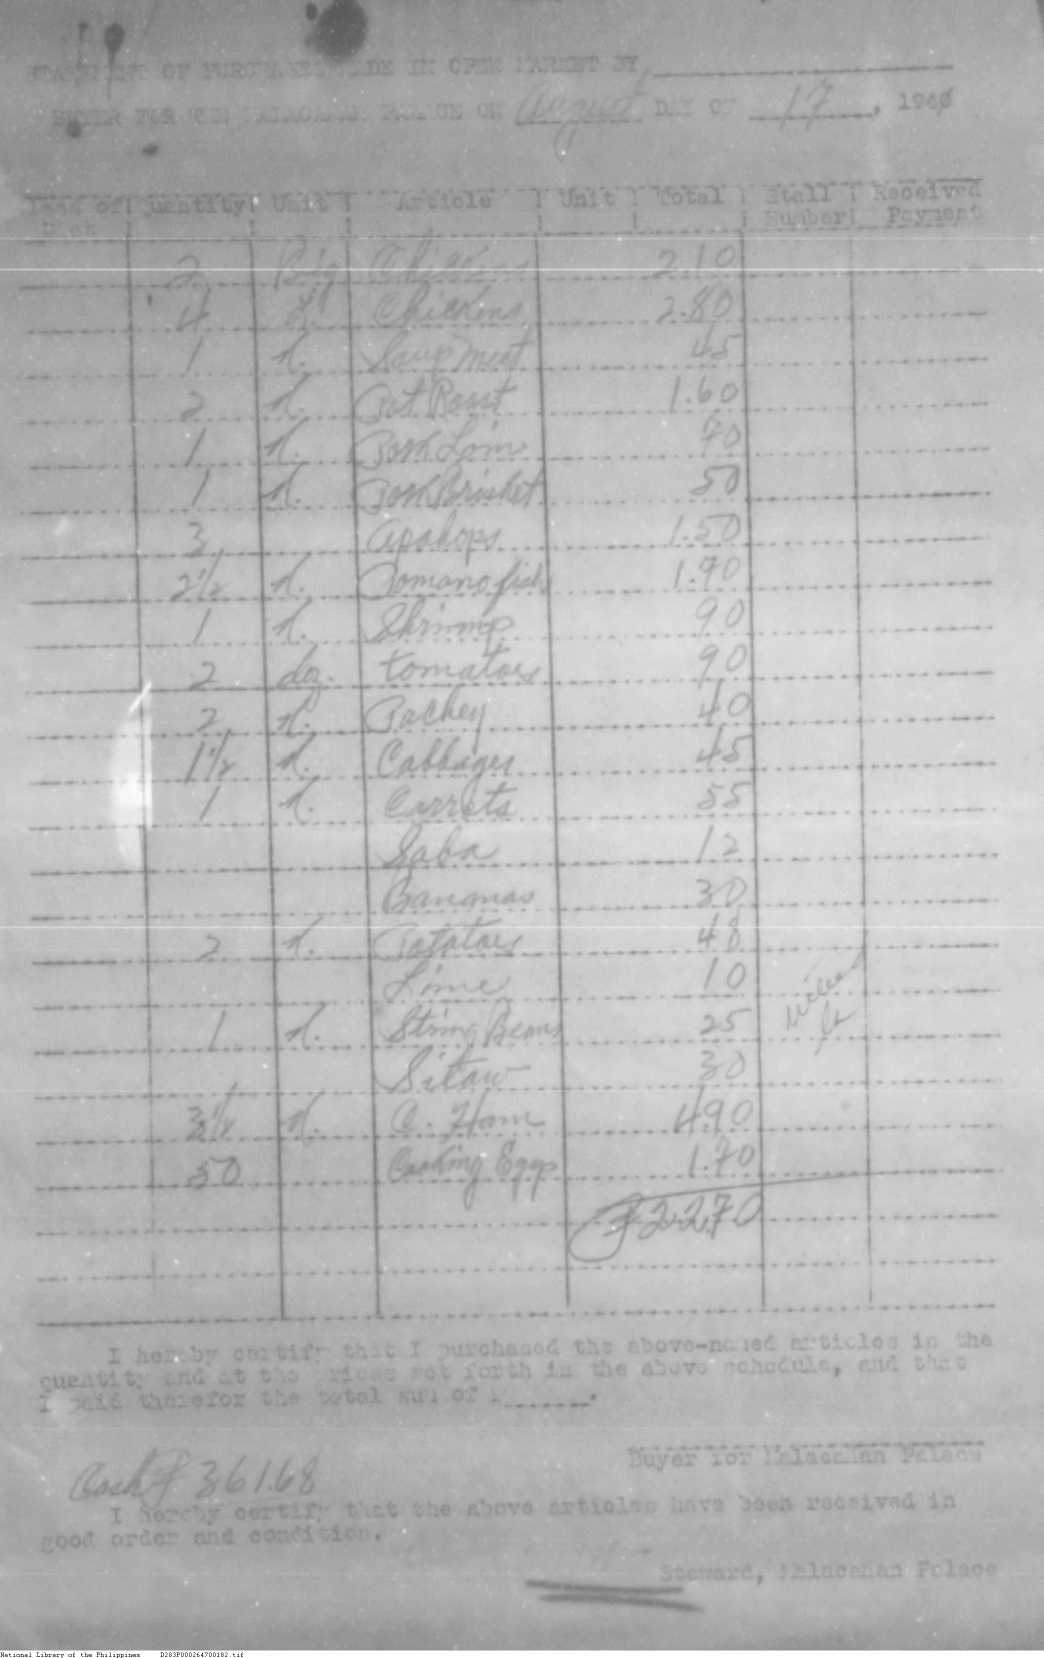 STATEMENT OF PURCHASES MADE IN OPEN MARKET BY
BUYER FOR THE MALACAÑAN PALACE ON August DAY OF 17, 1940
Quantity Unit Article Unit Total Stall Number Received Payment
2 Big Chickens 2.10
4 L. Chickens 2.80
1 K. Soup Meat 45
2 K. Pot Roast 1.60
1 K. Pork Loin 70
1 K. Pork Brisket 50
3 Apahops 1.50
2 1/2 K. Pomano fish 1.70
1 K. Shrimp 90
2 doz. tomatoes 90
2 K. Pachey 40
1 1/2 K. Cabbages 45
1 K. Carrots 55
Saba 12
Bananas 30
2 K. Potatoes 48
Lime 10
1 K. String Beans 25
Sitaw 30
3 1/2 K. C. Ham 4.90
50 Cooking Eggs 1.70
₱22.70
I hereby certify that I purchased the above-named articles in the
quantity and at the prices set forth in the above schedule, and that
I paid therefor the total sum of
Buyer for Malacañan Palace
Cash ₱ 361.68
I hereby certify that the above articles have been received in
good order and condition.
Steward, Malacañan Palace
National Library of the Philippines D283P000264700182.tif